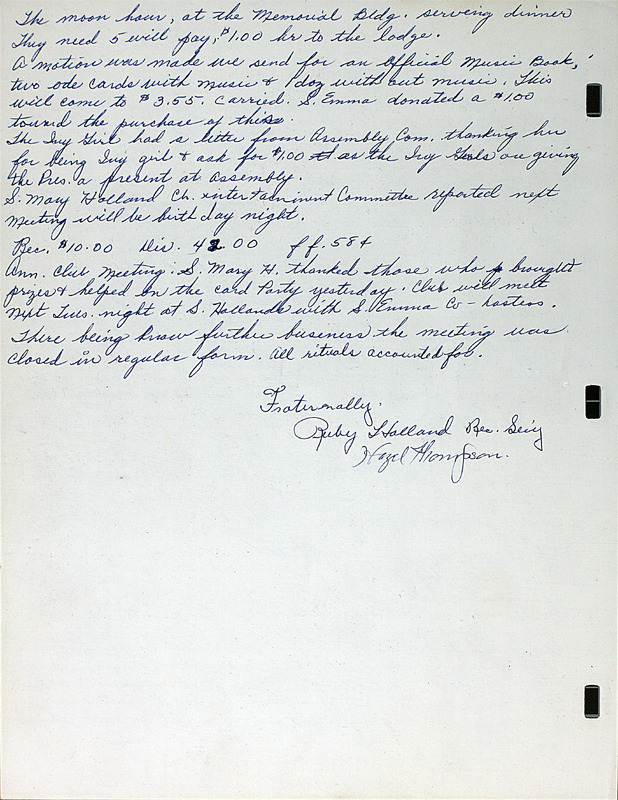 The moon hour, at the Memorial Bldg. serving dinner
They need 5 will pay, $1.00 hr to the lodge.
A motion was made we send for an Official Music Book,
two ode cards with music & 1 doz with out music. This
will come to $3.55. Carried. S. Emma donated a $1.00
toward the purchase of this.
The Ivy Girl had a letter from Assembly Com. thanking her
for being Ivy girl & ask for $1.00 as the Ivy Girls are giving
the Pres. a present at Assembly.
S. Mary Holland Ch. entertainment Committee reported next
Meeting will be birthday night.
Rec. $10.00 Dis. 42.00 ff. 58¢
Ann. Club Meeting. S. Mary H. thanked those who brought
prizes & helped on the card Party yesterday. Club will meet
Next Tues. night at S. Hollands with S. Emma Co-hostess.
There being know further business the meeting was
closed in regular form. All rituals accounted for.
Fraternally,
Ruby Holland Rec. Sec'y
Hazel Thompson.